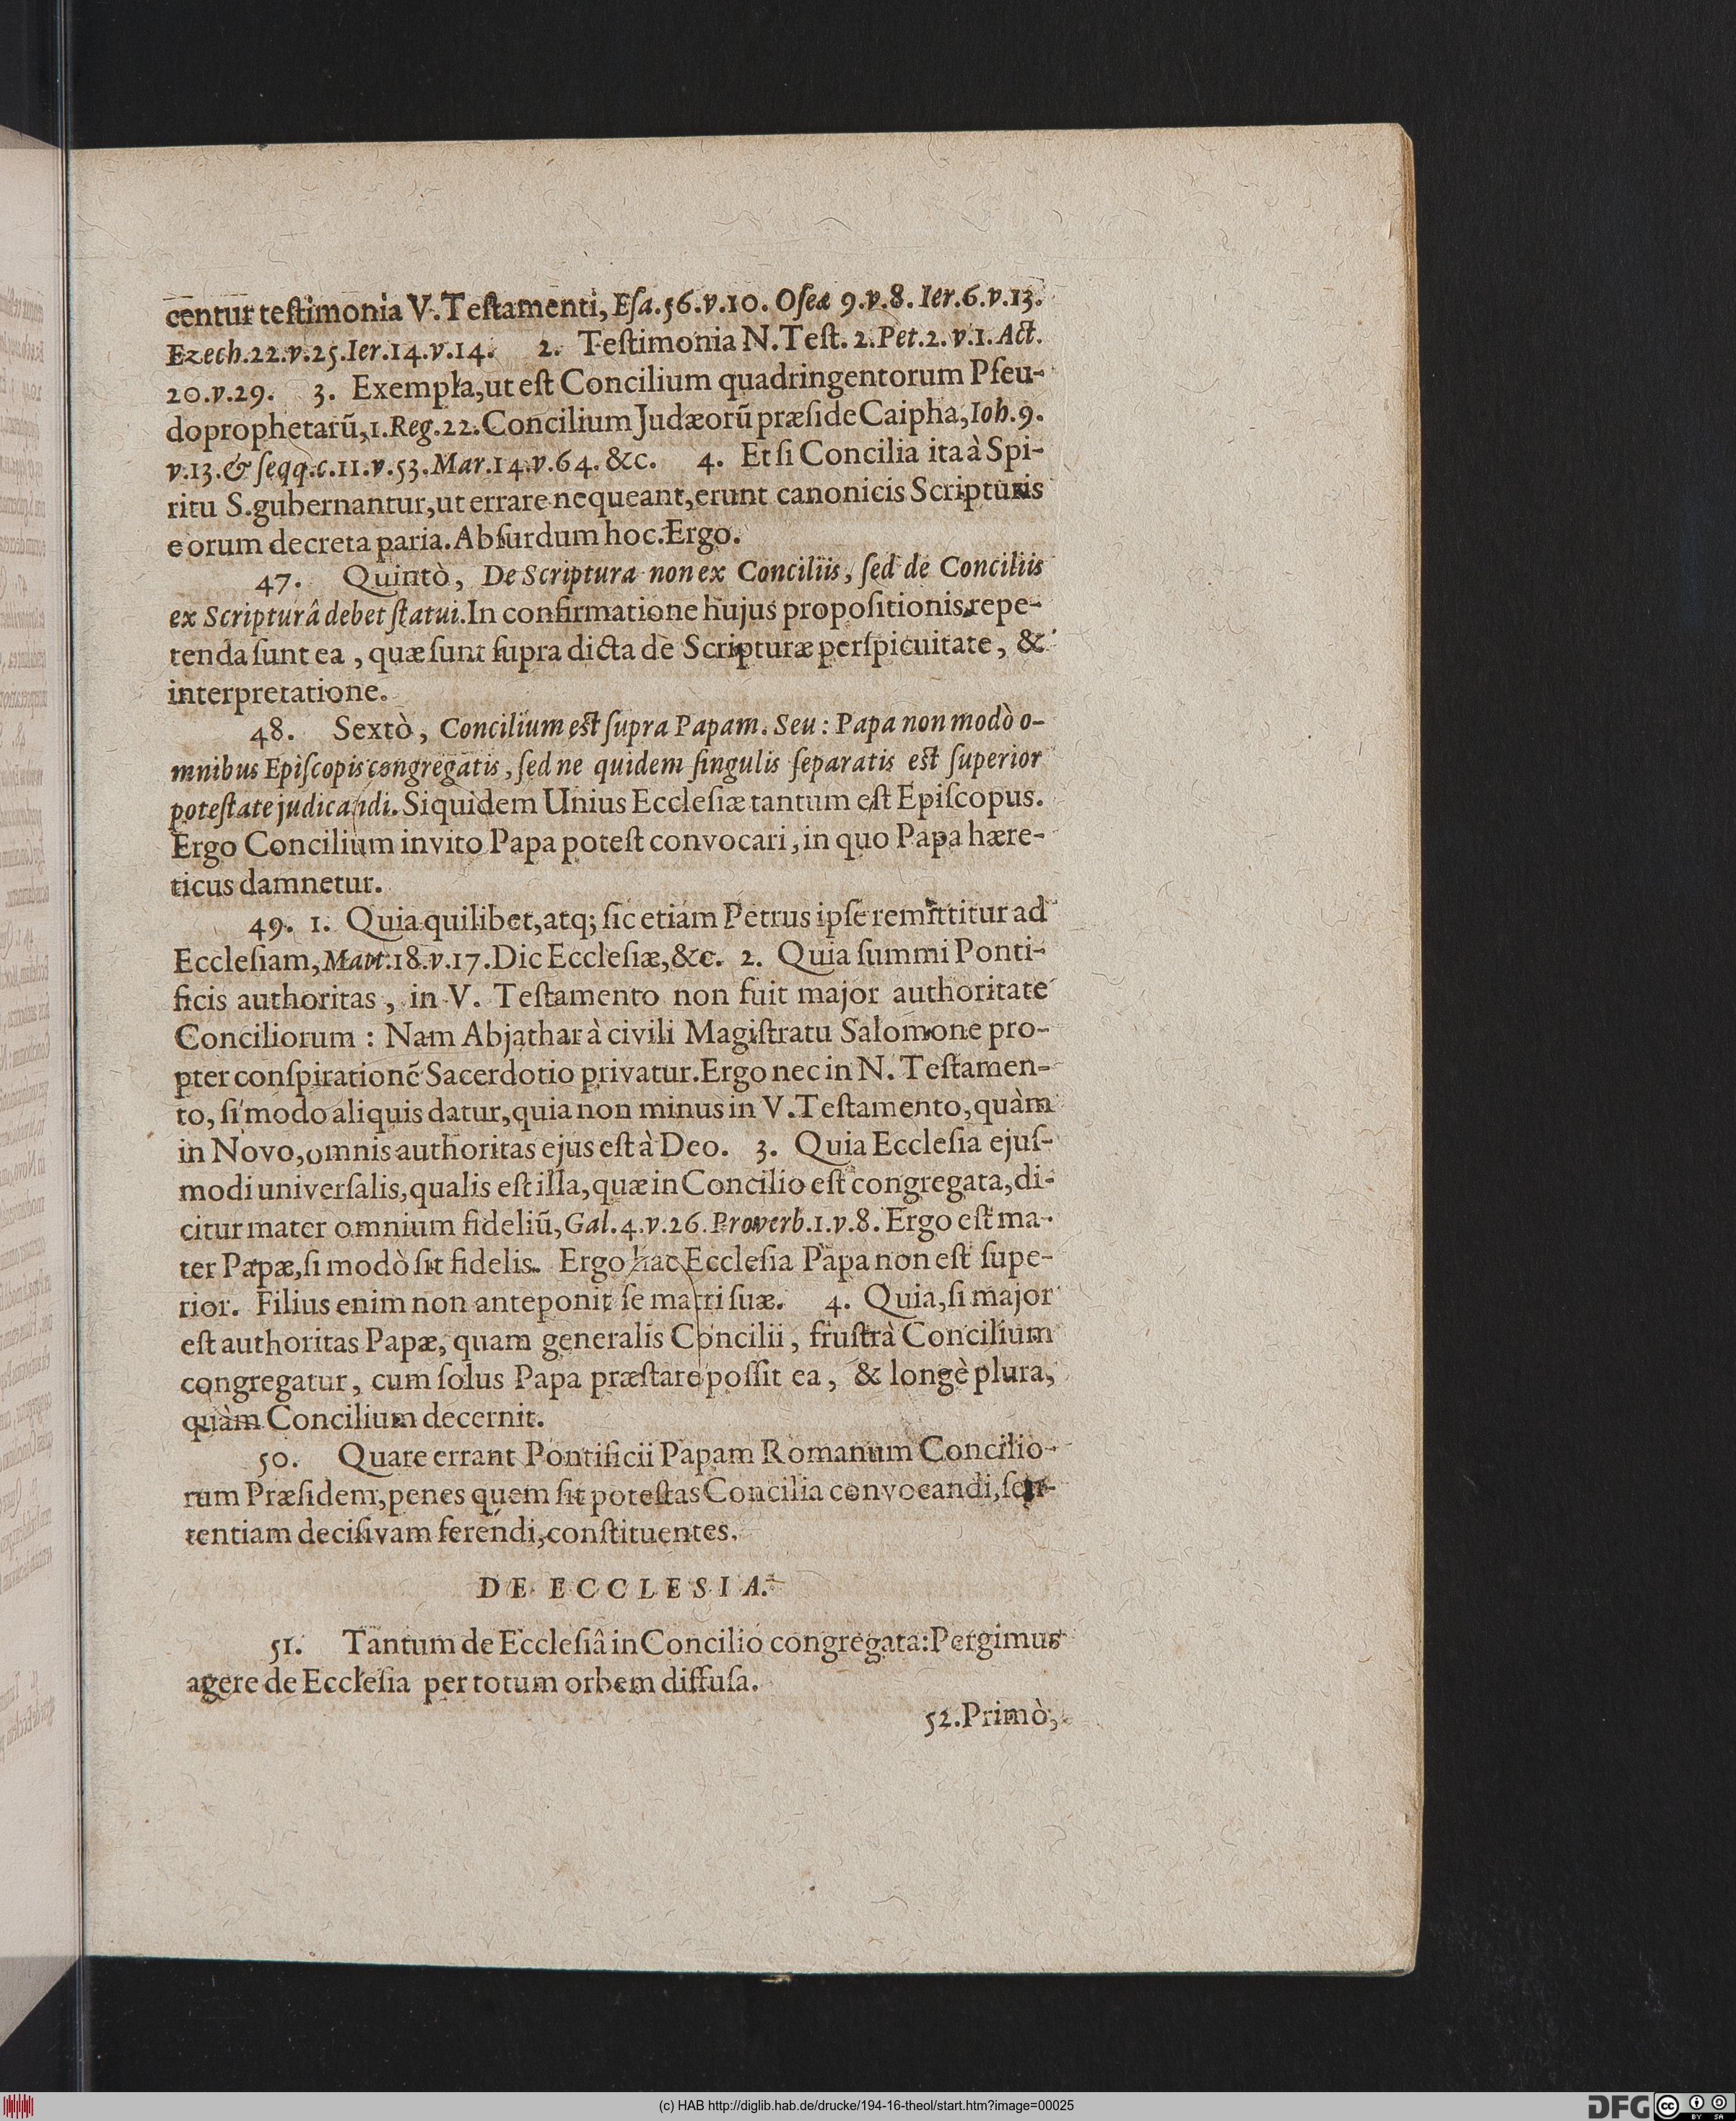 centur teſtimonia V. Teſtamenti, Eſa. 56. v. 10. Oſeæ 9. v. 8. Ier. 6. v. 13.
Ezech. 22. v. 25. Ier. 14. v. 14. 2. Teſtimonia N. Teſt. 2. Pet. 2. v. 1. Act.
20. v. 29. 3. Exempla, ut eſt Concilium quadringentorum Pſeu-
doprophetarũ, 1. Reg. 22. Concilium Judæorũ præſide Caipha, Ioh. 9.
v. 13. & ſeqq. c. 11. v. 53. Mar. 14. v. 64. &c. 4. Et ſi Concilia ita à Spi-
ritu S. gubernantur, ut errare nequeant, erunt canonicis Scripturis
eorum decreta paria. Abſurdum hoc. Ergo.
47. Quintò, De Scriptura non ex Conciliis, ſed de Conciliis
ex Scripturâ debet ſtatui. In confirmatione hujus propoſitionis repe-
tenda ſunt ea, quæ ſunt ſupra dicta de Scripturæ perſpicuitate, &
interpretatione.
48. Sextò, Concilium eſt ſupra Papam. Seu: Papa non modò o-
mnibus Epiſcopis congregatis, ſed ne quidem ſingulis ſeparatis eſt ſuperior
poteſtate judicandi. Siquidem Unius Eccleſiæ tantum eſt Epiſcopus.
Ergo Concilium invito Papa poteſt convocari, in quo Papa hære-
ticus damnetur.
49. 1. Quia quilibet, atq; ſic etiam Petrus ipſe remittitur ad
Eccleſiam, Matt. 18. v. 17. Dic Eccleſiæ, &c. 2. Quia ſummi Ponti-
ficis authoritas, in V. Teſtamento non fuit major authoritate
Conciliorum: Nam Abjathar à civili Magiſtratu Salomone pro-
pter conſpirationẽ Sacerdotio privatur. Ergo nec in N. Teſtamen-
to, ſi modo aliquis datur, quia non minus in V. Teſtamento, quàm
in Novo, omnis authoritas ejus eſt à Deo. 3. Quia Eccleſia ejuſ-
modi univerſalis, qualis eſt illa, quæ in Concilio eſt congregata, di-
citur mater omnium fideliũ, Gal. 4. v. 26. Proverb. 1. v. 8. Ergo eſt ma-
ter Papæ, ſi modò ſit fidelis. Ergo hac Eccleſia Papa non eſt ſupe-
rior. Filius enim non anteponit ſe matri ſuæ. 4. Quia, ſi major
eſt authoritas Papæ, quam generalis Concilii, fruſtrà Concilium
congregatur, cum ſolus Papa præſtare poſſit ea, & longè plura,
quàm Concilium decernit.
50. Quare errant Pontificii Papam Romanum Concilio-
rum Præſidem, penes quem ſit poteſtas Concilia convocandi, ſen-
tentiam deciſivam ferendi, conſtituentes.
DE ECCLESIA.
51. Tantum de Eccleſiâ in Concilio congregata: Pergimus
agere de Eccleſia per totum orbem diffuſa.
52. Primò,
(c) HAB http://diglib.hab.de/drucke/194-16-theol/start.htm?image=00025
DFG